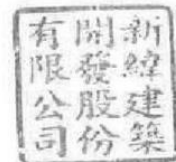 新緯建築
開發股份
有限公司